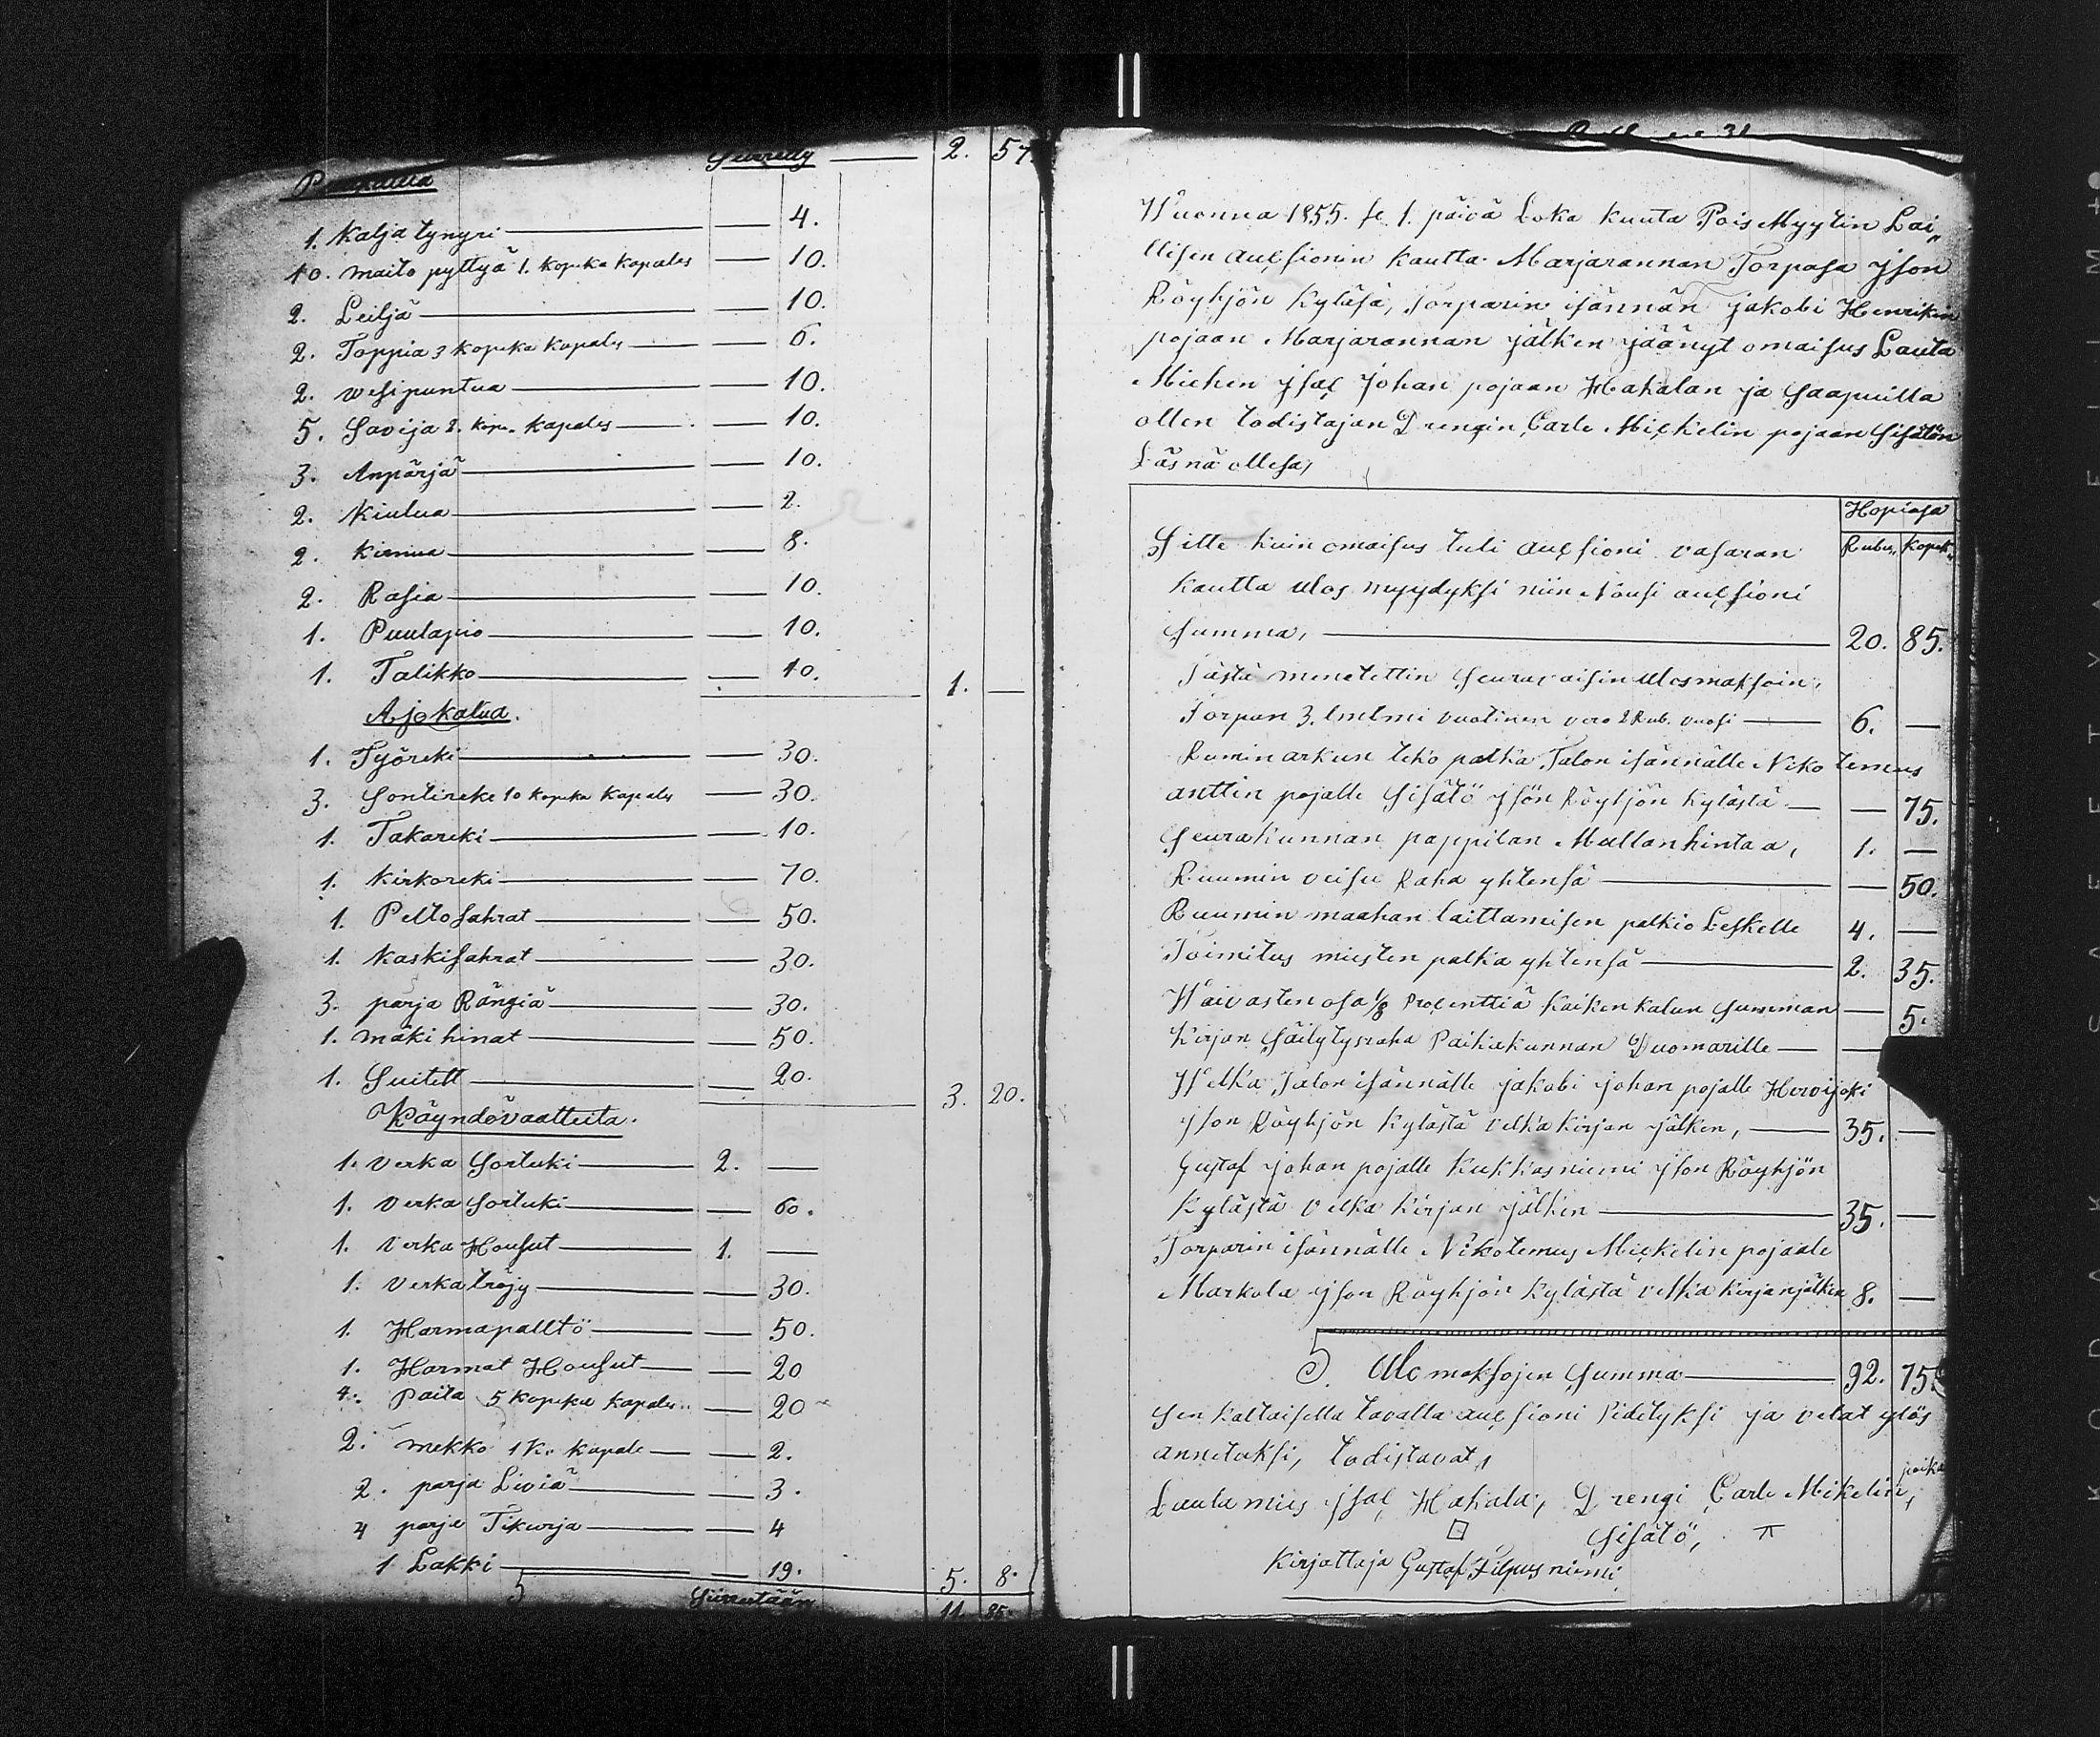 Siirretty — 2. 57
1. Kalja tynyri — 4.
10. maito pyttyä 1. kopeka kapales — 10.
2. Leiljä — 10.
2. Toppia 3 kopeka kapales — 6.
2. vesipuntua — 10.
5. Savija 2. kope. kapales — 10.
3. Anpärjä — 10.
2. Kiulua — 2.
2. Kirnua — 8.
2. Rasia — 10.
1. Puulapio — 10.
1. Talikko — 10. 1. —
Ajokalua.
1. Työreki — 30.
3. Sontireke 10 kopeka kapales — 30.
1. Takareki — 10.
1. Kirkoreki — 70.
1. Peltosahrat — 50.
1. Kaskisahrat — 30.
3. parja Rängiä — 30.
1. mäki hinat — 50.
1. Suitett — 20. 3. 20.
Käyndövaatteita.
1. Verka Sortuki — 2. —
1. Verka Sortuki — 60.
1. Verka Housut — 1. —
1. Verka tröjy — 30.
1. Harmapalltö — 50.
1. Harmat Housut — 20
4. Paita 5 kopeka kapales — 20
2. mekko 1 K. kapale — 2.
2. parja Liviä — 3.
4 parja Tikurja — 4
1 Lakki — 19. 5. 8.
Siirretään 11. 85.
Wuonna 1855. se 1. päivä Loka kuuta Pois Myytin Lai„
llisen aucsionin kautta Marjarannan Torpasa yson
Röyhjön kyläsä, Torparin isännän jakobi Henrikin
pojaan Marjarannan jälken jäänyt omaisus Lauta
Miehen ysac Johan pojaan Hakalan ja saapuilla
ollen todistajan Drengin Carle Mickelin pojaan Sisätön
Läsnä ollesa,
Hopiasa
Rubu„ Kopek„
Sitte kuin omaisus tuli aucsioni vasaran
kautta ulos myydyksi niin Nousi aucsioni
summa, — 20. 85.
Tästä menetettin seuravaisin ulosmaksoin,
Torpan 3. lmlmi vuotinen vero 2 Rub. vuosi — 6. —
Rumin arkun teko palka Talon isännälle Nikotemus
anttin pojalle Sisätö ysön Röyhjön kylästä — 75.
Seurakunnan pappilan Mullanhintaa, 1. —
Ruumin veisu Raha yhtensä — 50.
Ruumin maahan laittamisen palkio Leskelle 4. —
Toimitus miesten palka yhtensä — 2. 35.
Waivasten osa 1/8 Procenttiä kaiken kalun summan — 5.
Kirjan säilytysraha Paikakunnan Duomarille —
Welka Talon isännälle jakobi johan pojalle Hervijoki
yson Röyhjön kylästä velka kirjan jälken, — 35. —
Gustaf johan pojalle Kukkasniemi yson Röyhjön
kylästä velka kirjan jälkin — 35. —
Torparin isännälle Nikotemus Mickelin pojaale
Markola yson Röyhjön kylästä velka kirjanjälken 8. —
S. Ulo maksojen summa — 92. 75.
sen kaltaisella tavalla aucsioni pidetyksi ja velat ylös
annetuksi, todistavat,
Lautamies ysac Hakala, Drengi Carle Mikelin poika,
Sisätö,
Kirjottaja Gustaf Filpusniemi